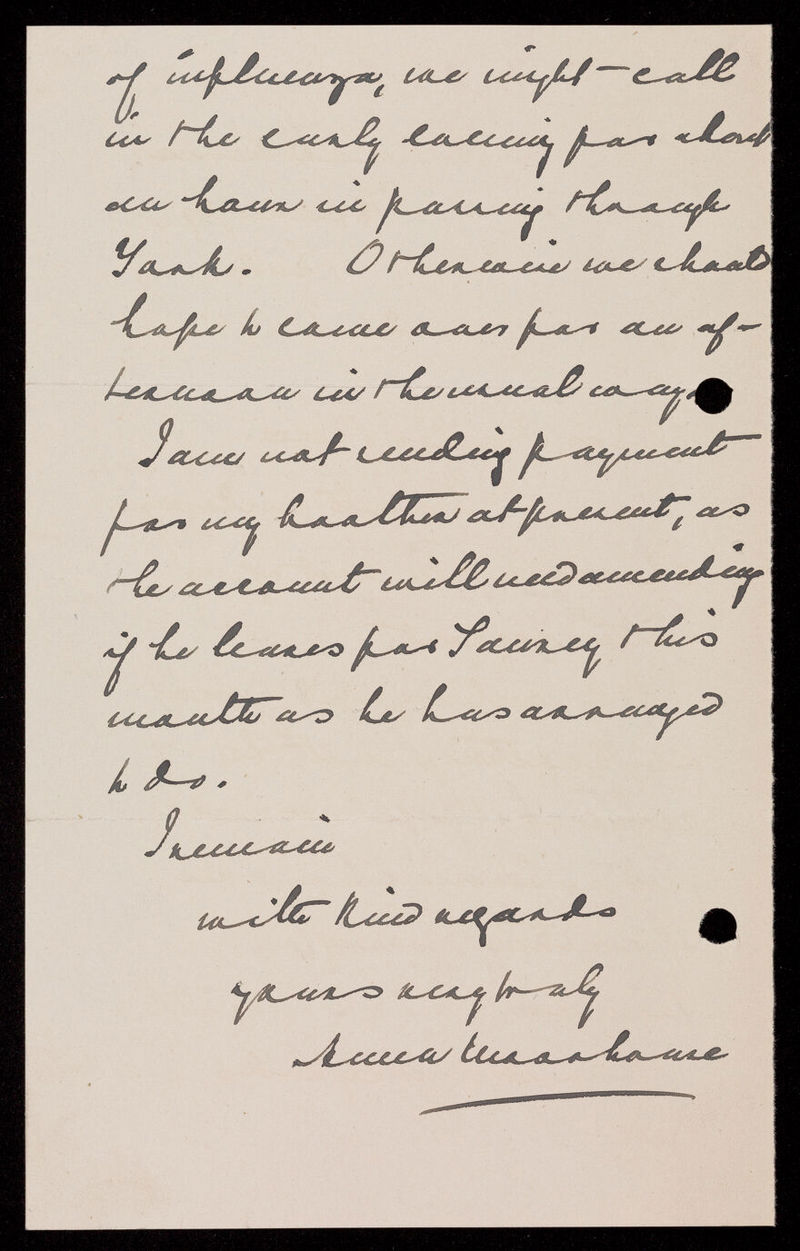 of influenza, we might call
in the early evening for about
an hour in passing through
York. Otherwise we should
hope to come over for an af-
ternoon in the usual way.
I am not sending payment
for my brother at present, as
the account will need amending
if he leaves for Torquay this
month as he has arranged
to do.
I remain
with kind regards
yours very truly
Anna Moorhouse